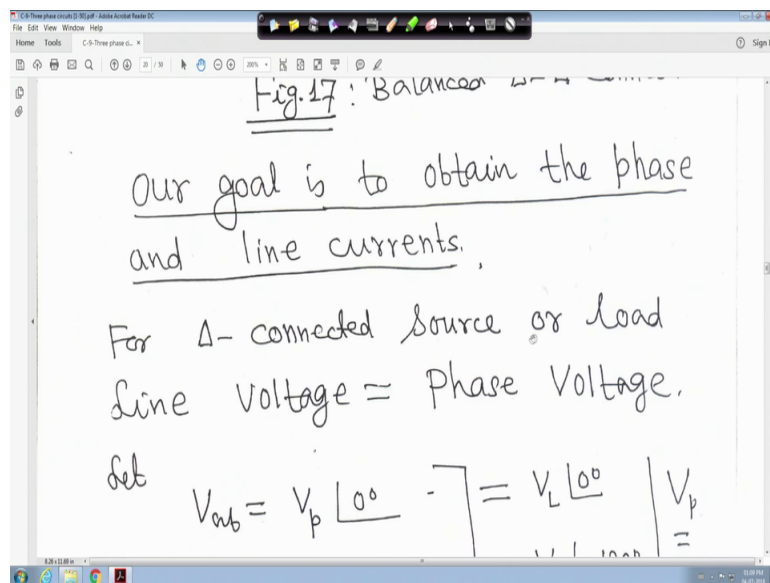 C-9-Three phase circuits [1-50].pdf - Adobe Acrobat Reader DC
File Edit View Window Help
Home Tools C-9-Three phase ci... × Sign I
20 / 50 200%
Fig.17: Balanced Δ-Δ
Our goal is to obtain the phase
and line currents.
For Δ- connected source or load
Line Voltage = Phase Voltage.
Let
Vab = Vp ∠0° - = VL ∠0° Vp
=
8.20 x 11.60 in
01:09 PM